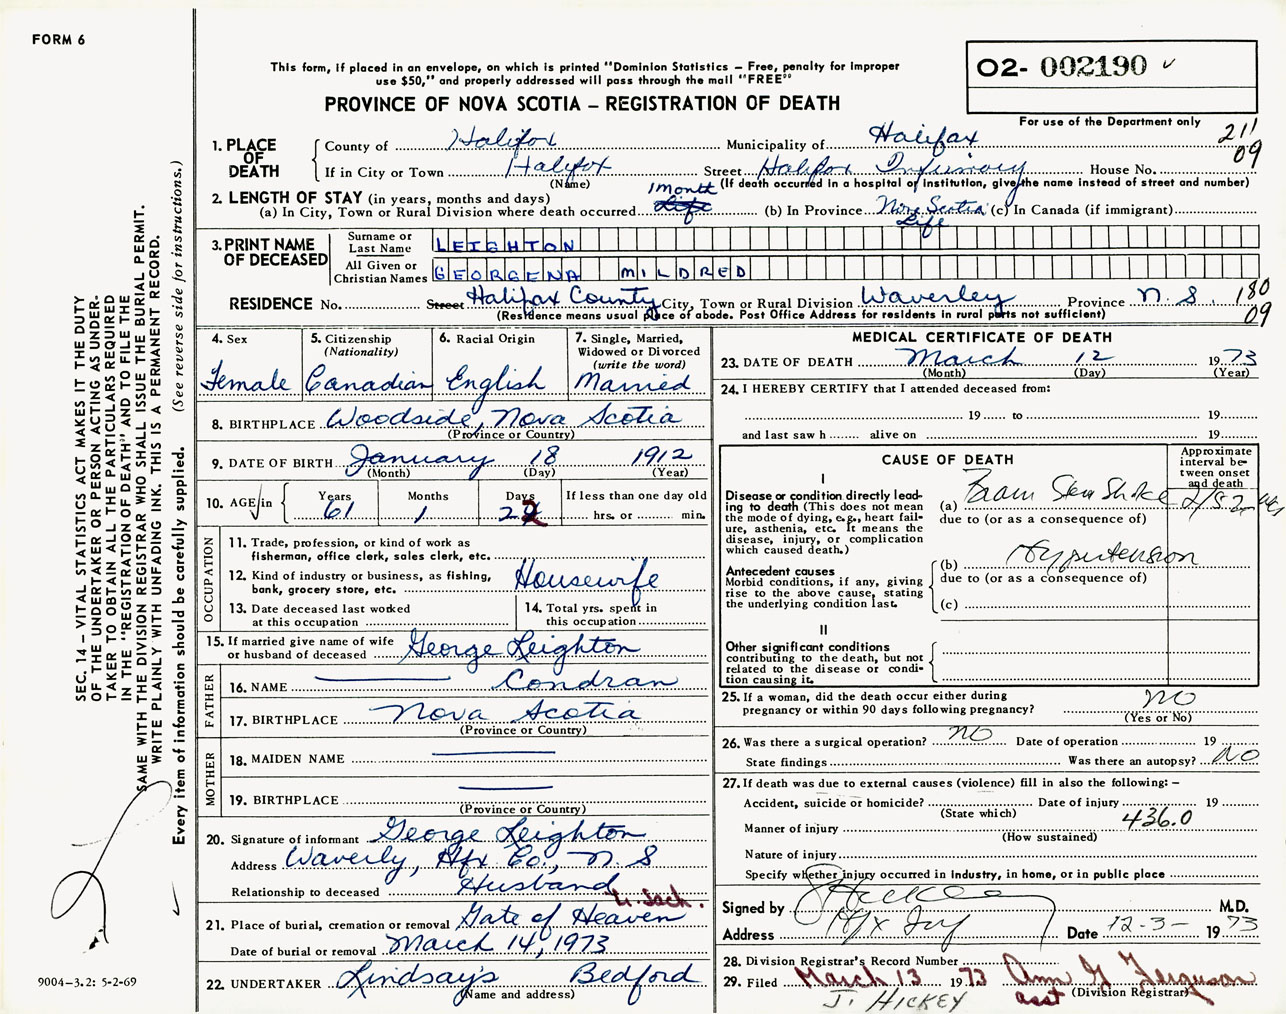 FORM 6
This form, if placed in an envelope, on which is printed "Dominion Statistics – Free, penalty for improper
use $50," and properly addressed will pass through the mail "FREE"
PROVINCE OF NOVA SCOTIA – REGISTRATION OF DEATH
O2- 002190
For use of the Department only
211
09
1. PLACE OF DEATH
County of Halifax Municipality of Halifax
If in City or Town Halifax Street Halifax Infirmary House No.
(Name) (If death occurred in a hospital or institution, give the name instead of street and number)
2. LENGTH OF STAY (in years, months and days)
1 month
(a) In City, Town or Rural Division where death occurred Life (b) In Province Nova Scotia (c) In Canada (if immigrant)
Life
3. PRINT NAME OF DECEASED
Surname or Last Name LEIGHTON
All Given or Christian Names GEORGENA MILDRED
RESIDENCE No. Street Halifax County City, Town or Rural Division Waverley Province N.S.
(Residence means usual place of abode. Post Office Address for residents in rural parts not sufficient)
180
09
4. Sex 5. Citizenship (Nationality) 6. Racial Origin 7. Single, Married, Widowed or Divorced (write the word)
Female Canadian English Married
8. BIRTHPLACE Woodside, Nova Scotia
(Province or Country)
9. DATE OF BIRTH January 18 1912
(Month) (Day) (Year)
10. AGE in Years Months Days If less than one day old
61 1 22 hrs. or min.
OCCUPATION
11. Trade, profession, or kind of work as
fisherman, office clerk, sales clerk, etc.
12. Kind of industry or business, as fishing,
bank, grocery store, etc. Housewife
13. Date deceased last worked
at this occupation
14. Total yrs. spent in
this occupation
15. If married give name of wife
or husband of deceased George Leighton
FATHER
16. NAME Condran
17. BIRTHPLACE Nova Scotia
(Province or Country)
MOTHER
18. MAIDEN NAME
19. BIRTHPLACE
(Province or Country)
20. Signature of informant George Leighton
Address Waverly, Hfx Co., N.S
Relationship to deceased Husband
21. Place of burial, cremation or removal Gate of Heaven
Date of burial or removal March 14, 1973
22. UNDERTAKER Lindsay's Bedford
(Name and address)
MEDICAL CERTIFICATE OF DEATH
23. DATE OF DEATH March 12 1973
(Month) (Day) (Year)
24. I HEREBY CERTIFY that I attended deceased from:
19 to 19
and last saw h alive on 19
CAUSE OF DEATH
Approximate interval between onset and death
I
Disease or condition directly leading to death (This does not mean the mode of dying, e.g., heart failure, asthenia, etc. It means the disease, injury, or complication which caused death.)
(a) Brain Stem Stroke
due to (or as a consequence of)
Antecedent causes
Morbid conditions, if any, giving rise to the above cause, stating the underlying condition last.
(b) Hypertension
due to (or as a consequence of)
(c)
II
Other significant conditions
contributing to the death, but not related to the disease or condition causing it.
25. If a woman, did the death occur either during
pregnancy or within 90 days following pregnancy? NO
(Yes or No)
26. Was there a surgical operation? NO Date of operation 19
State findings Was there an autopsy? NO
27. If death was due to external causes (violence) fill in also the following: –
Accident, suicide or homicide? Date of injury 19
(State which)
436.0
Manner of injury
(How sustained)
Nature of injury
Specify whether injury occurred in industry, in home, or in public place
Signed by J Hickey M.D.
Address Hfx Inf Date 12-3- 1973
28. Division Registrar's Record Number
29. Filed March 13 1973 Ann G Ferguson
asst (Division Registrar)
J. HICKEY
SEC. 14 – VITAL STATISTICS ACT MAKES IT THE DUTY
OF THE UNDERTAKER OR PERSON ACTING AS UNDER-
TAKER TO OBTAIN ALL THE PARTICULARS REQUIRED
IN THE "REGISTRATION OF DEATH" AND TO FILE THE
SAME WITH THE DIVISION REGISTRAR WHO SHALL ISSUE THE BURIAL PERMIT.
WRITE PLAINLY WITH UNFADING INK. THIS IS A PERMANENT RECORD.
Every item of information should be carefully supplied. (See reverse side for instructions.)
9004-3.2: 5-2-69